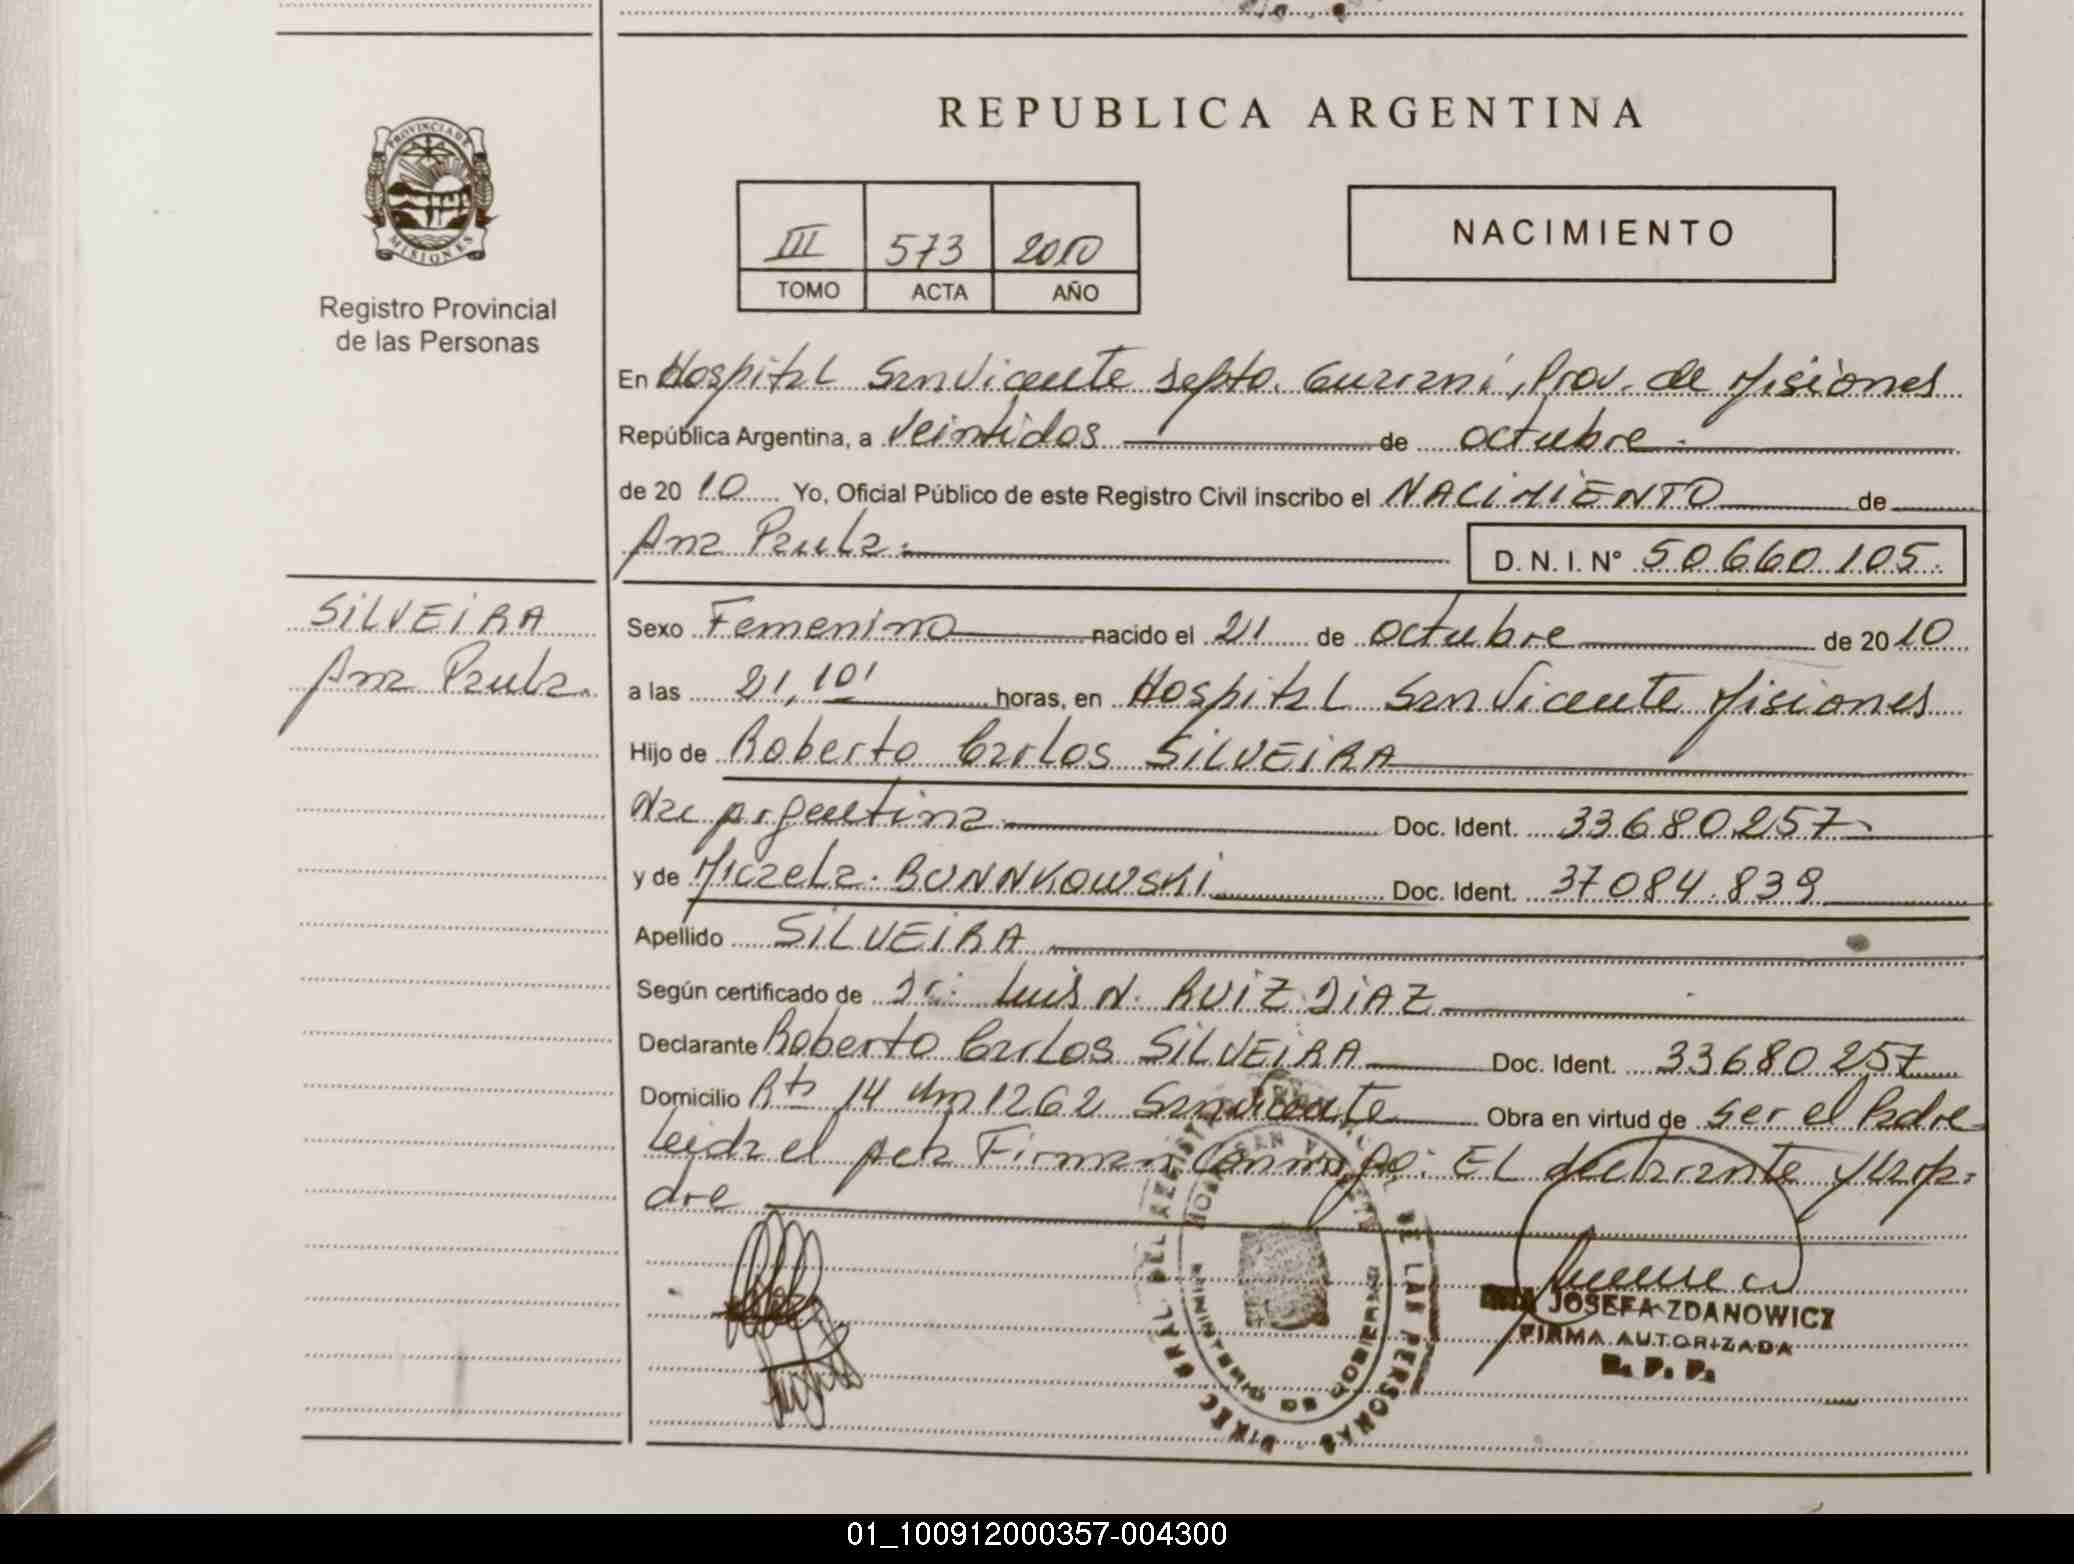 REPUBLICA ARGENTINA
PROVINCIA DE MISIONES
Registro Provincial
de las Personas
III 573 2010
TOMO ACTA AÑO
NACIMIENTO
En Hospital San Vicente Depto. Guaraní, Prov. de Misiones
República Argentina, a Veintidos de octubre
de 20 10 Yo, Oficial Público de este Registro Civil inscribo el NACIMIENTO de
Ana Paula.
D. N. I. N° 50660105.
SILVEIRA
Ana Paula.
Sexo Femenino nacido el 21 de octubre de 20 10
a las 21,10' horas, en Hospital San Vicente Misiones
Hijo de Roberto Carlos SILVEIRA
Nac Argentina Doc. Ident. 33680257
y de Micaela. BONNKOWSKI Doc. Ident. 37084.839
Apellido SILVEIRA
Según certificado de Dr. Luis N. RUIZ DIAZ
Declarante Roberto Carlos SILVEIRA Doc. Ident. 33680257
Domicilio Rta 14 Km 1262 San Vicente Obra en virtud de ser el Padre
Leida el acta Firman Conmigo: EL declarante y la ma-
dre
JOSEFA ZDANOWICZ
FIRMA AUTORIZADA
R. P. P.
01_100912000357-004300